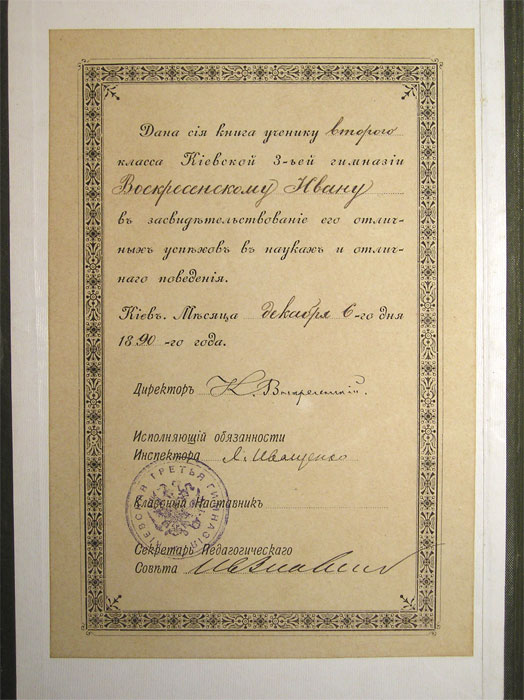 Дана сія книга ученику второго
класса Кіевской 3-ьей гимназіи
Воскресенскому Ивану
въ засвидѣтельствованіе его отлич-
ныхъ успѣховъ въ наукахъ и отлич-
наго поведенія.
Кіевъ. Мѣсяца декабря 6-го дня
1890-го года.
Директоръ
Исполняющій обязанности
Инспектора Я. Иващенко
Классный Наставникъ
Секретарь Педагогическаго
Совѣта
КІЕВСКАЯ ТРЕТЬЯ ГИМНАЗІЯ